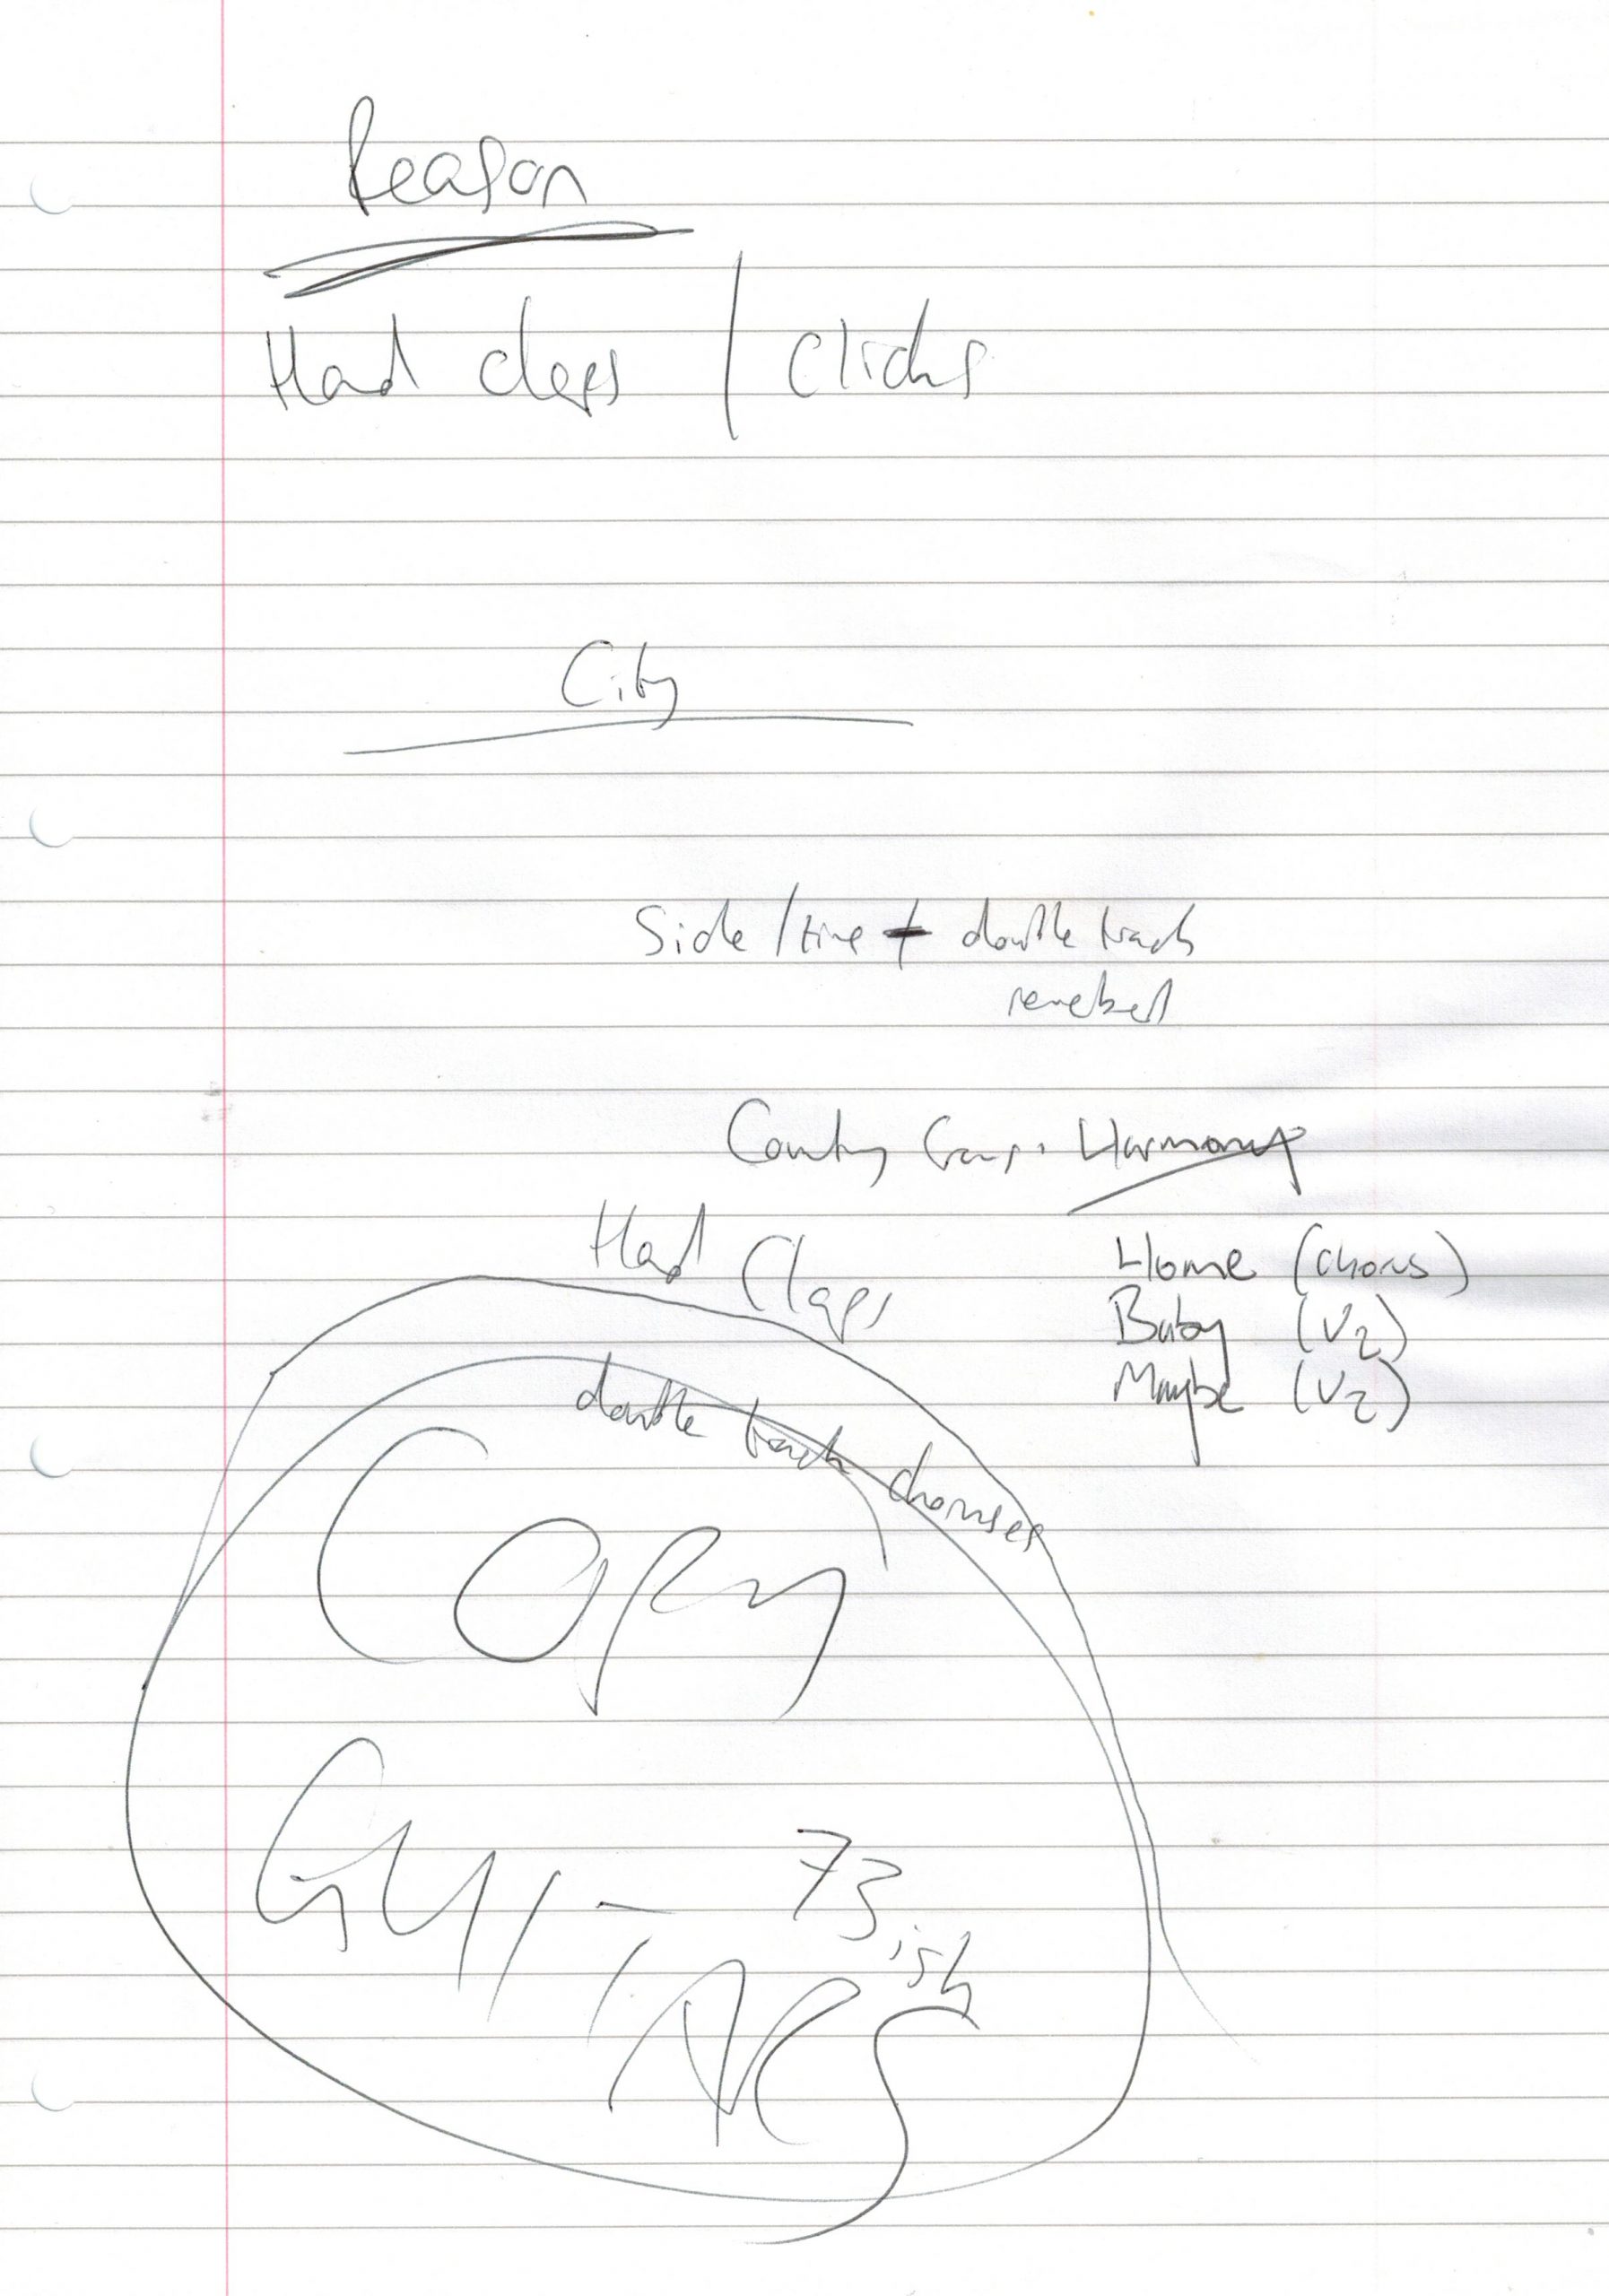 Reason
Hand claps / Clicks
City
Side / time + double track
Harmony
Hand Claps
Home (chorus)
Baby (V2)
Maybe (V2)
double track choruses
Copy
- 73ish